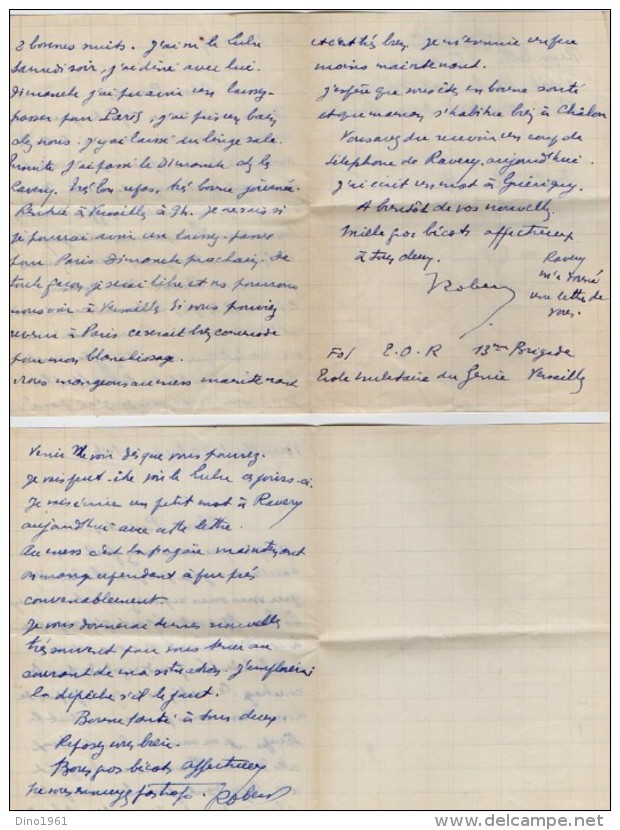 2 bonnes nuits. J'ai vu le Lulu
Samedi soir, j'ai dîné avec lui.
Dimanche j'ai pu avoir un laissez-
passer pour Paris, j'ai pris un bain
chez nous. J'y ai laissé du linge sale.
Ensuite j'ai passé le Dimanche chez les
Ravery. Très bon repas, très bonne journée.
Rentrée à Versailles à 9h. Je ne sais si
je pourrai avoir un laissez-passer
pour Paris Dimanche prochain. De
toute façon je serai libre et vous pourrez
nous voir à Versailles. Si vous pouviez
revenir à Paris ce serait très commode
pour mon blanchissage.
Nous mangeons au mess maintenant
et c'est très bien. Je m'ennuie un peu
moins maintenant.
J'espère que vous êtes en bonne santé
et que maman s'habitue bien à Châlon
Vous avez du recevoir un coup de
téléphone de Ravery aujourd'hui.
J'ai écrit un mot à Guérigny.
A bientôt de vos nouvelles.
Mille gros bécots affectueux
à tous deux.
Robert
Ravery
m'a donné
une lettre de
vous.
E.O.R 13me Brigade
Ecole militaire du Génie Versailles
venir me voir dès que vous pourrez.
Je vais peut-être voir le Lulu ces jours-ci.
Je vais écrire un petit mot à Ravery
aujourd'hui avec cette lettre.
Au mess c'est la pagaïe maintenant
on mange cependant à peu près
convenablement.
Je vous donnerai de mes nouvelles
très souvent pour vous tenir au
courant de ma situation. J'emploierai
la dépêche s'il le faut.
Bonne santé à tous deux
Reposez vous bien.
Bons gros bécots affectueux
Ne vous ennuyez pas trop. Robert
Dino1961